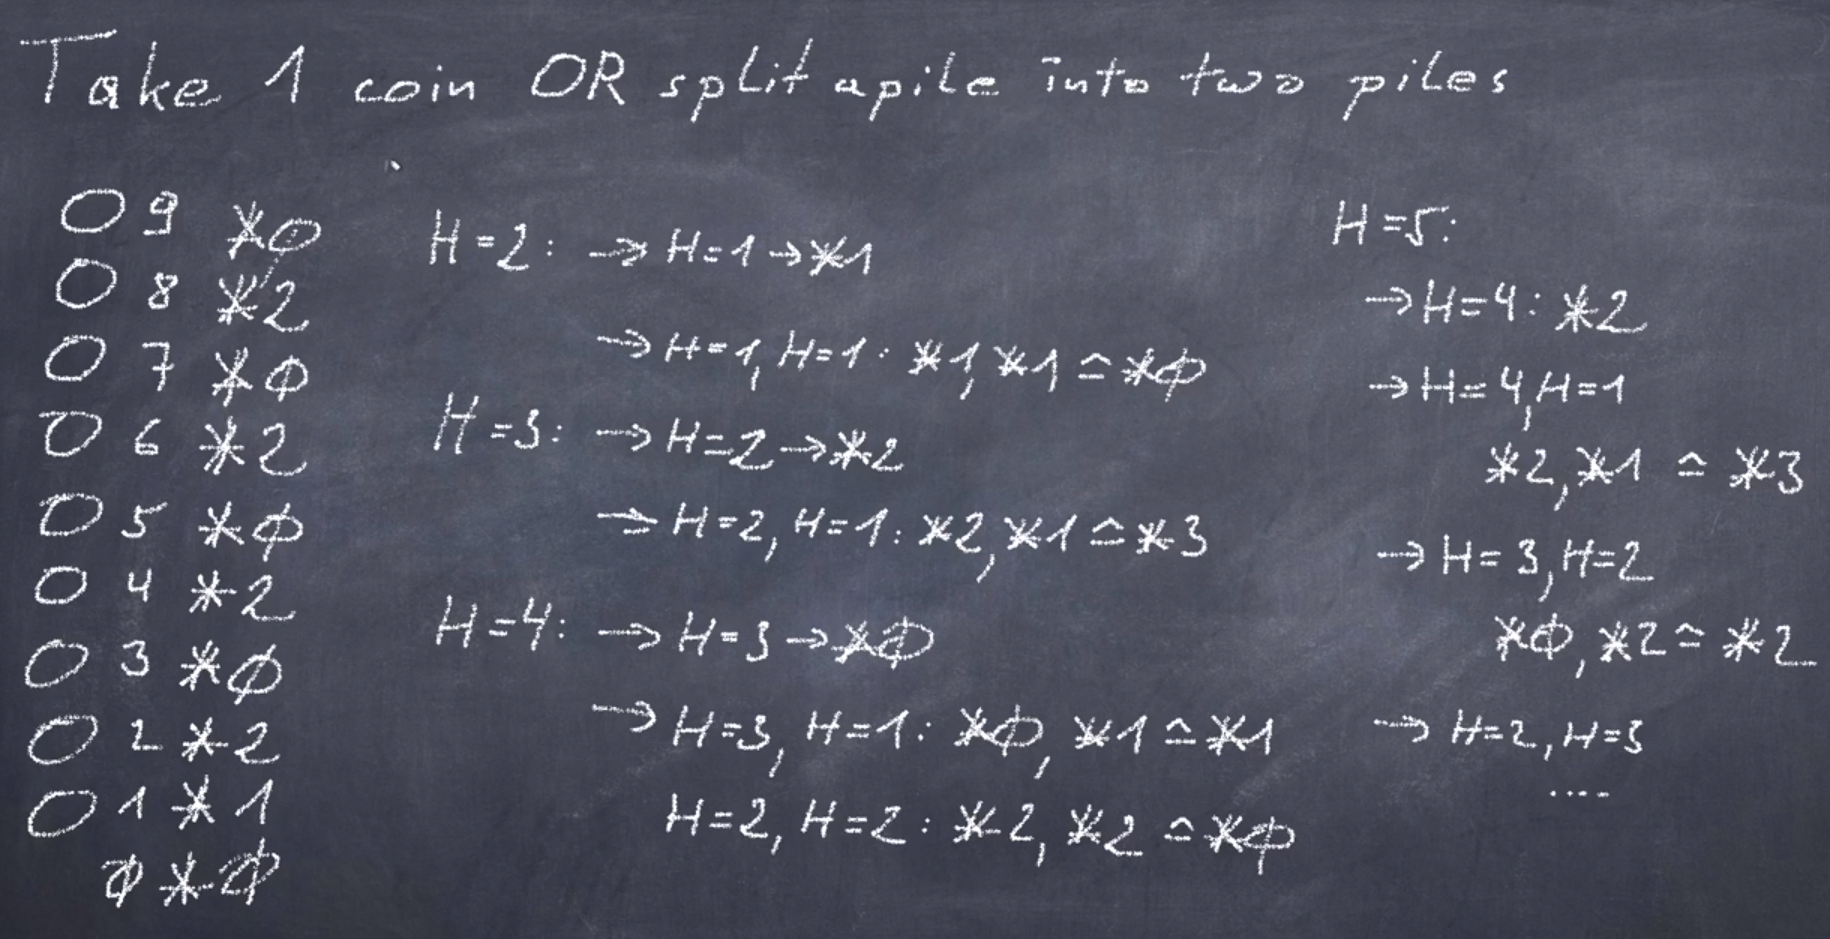 Take 1 coin OR split a pile into two piles
O 9 *0
O 8 *2
O 7 *0
O 6 *2
O 5 *0
O 4 *2
O 3 *0
O 2 *2
O 1 *1
0 *0
H=2: → H=1 → *1
→ H=1, H=1: *1, *1 ≙ *0
H=3: → H=2 → *2
→ H=2, H=1: *2, *1 ≙ *3
H=4: → H=3 → *0
→ H=3, H=1: *0, *1 ≙ *1
H=2, H=2: *2, *2 ≙ *0
H=5:
→ H=4: *2
→ H=4, H=1
*2, *1 ≙ *3
→ H=3, H=2
*0, *2 ≙ *2
→ H=2, H=3
....